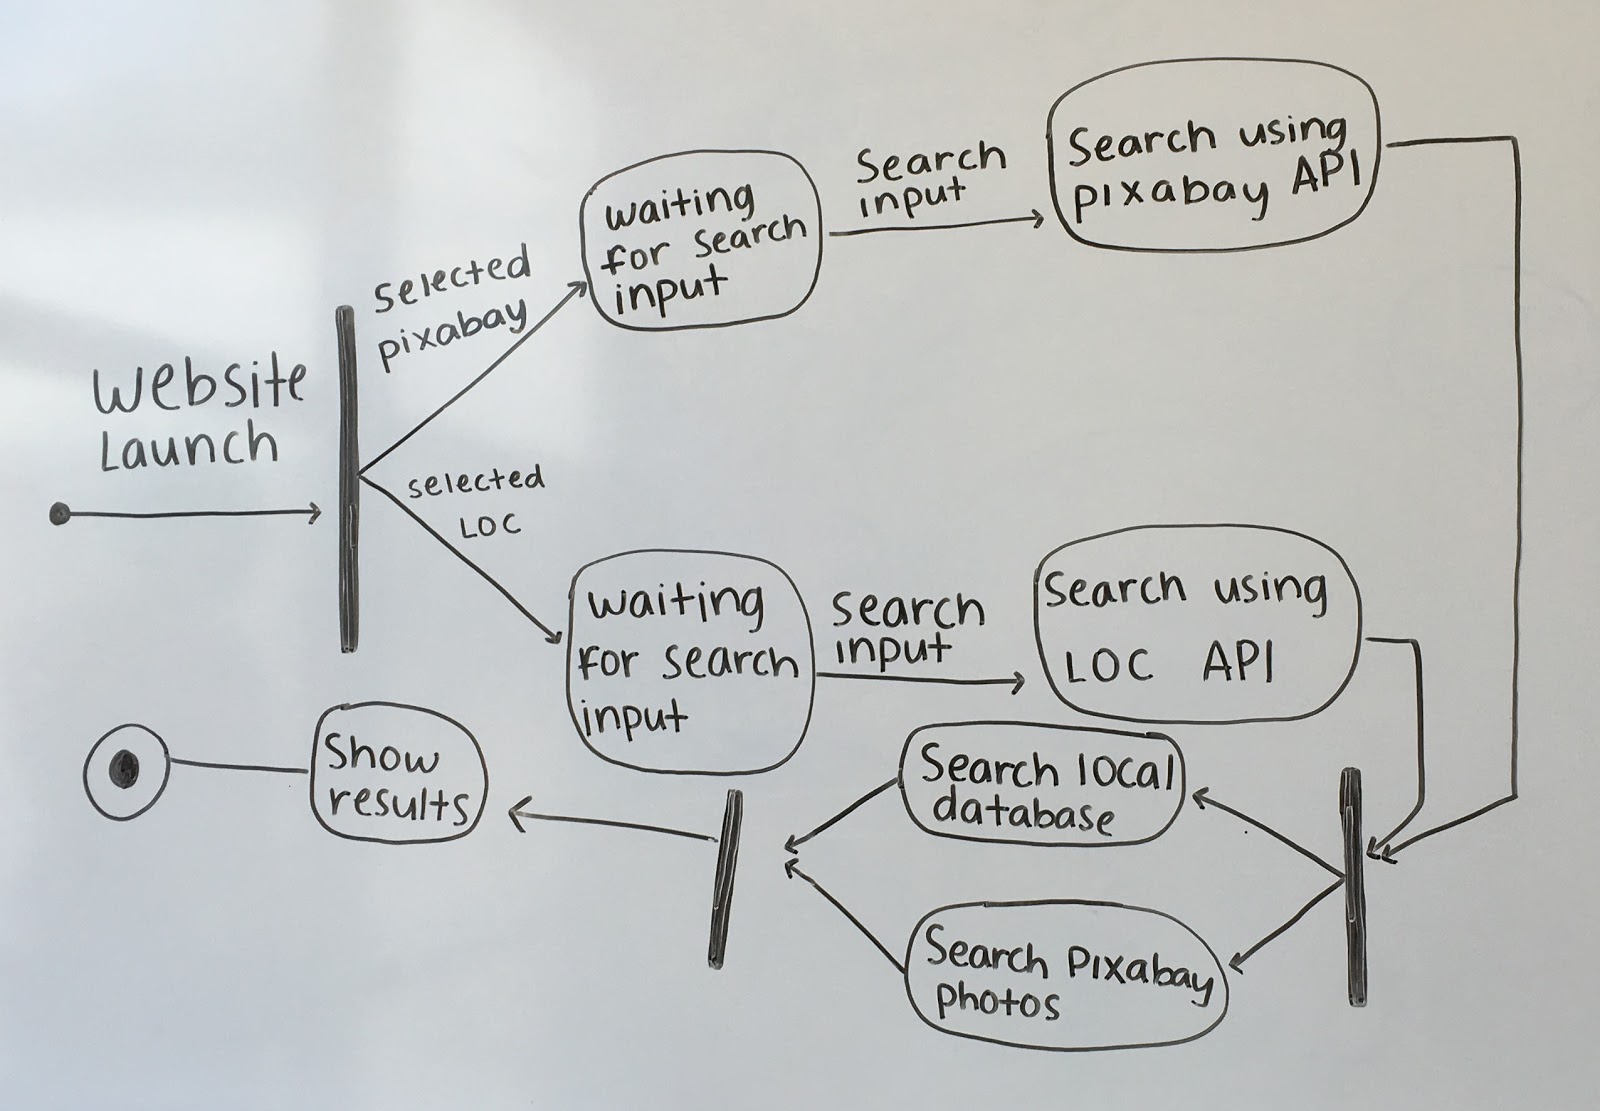 Website
Launch
selected
pixabay
waiting
for search
input
Search
input
Search using
pixabay API
selected
LOC
waiting
for search
input
search
input
Search using
LOC API
Search local
database
Search Pixabay
photos
Show
results